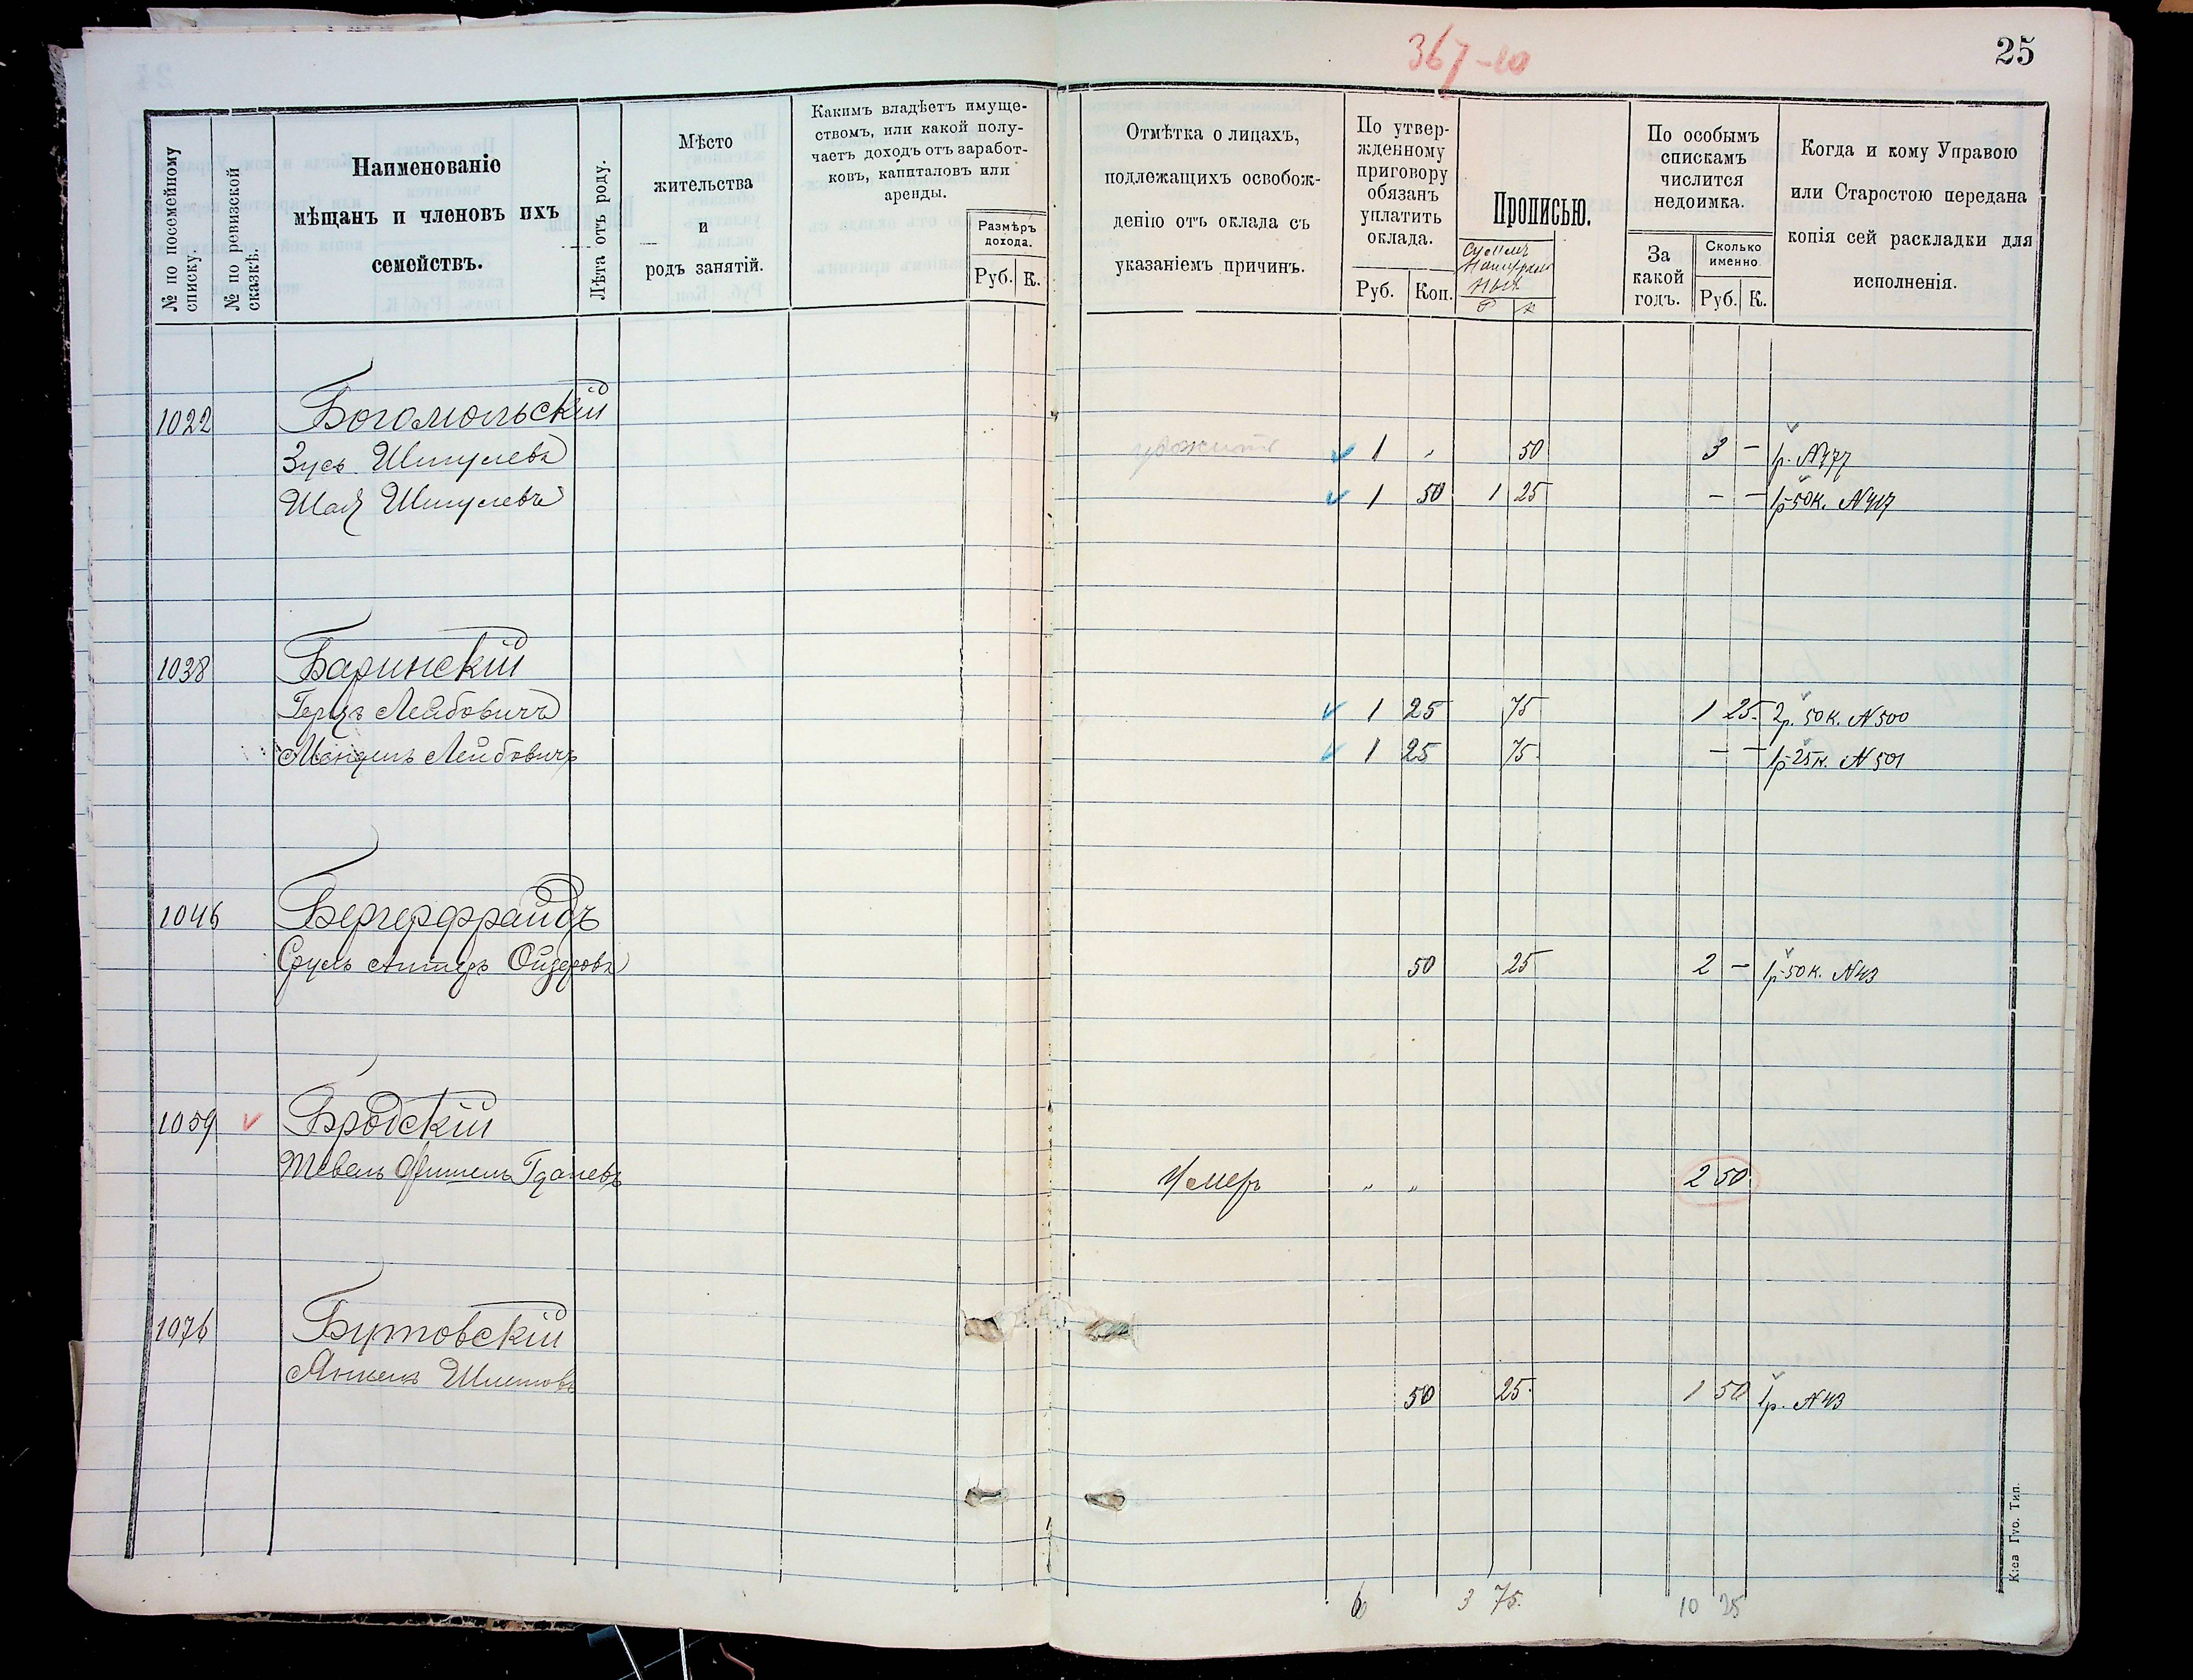 367-10
25
№ по посемейному списку.
№ по ревизской сказкѣ.
Наименованіе
мѣщанъ и членовъ ихъ
семействъ.
Лѣта отъ роду.
Мѣсто
жительства
и
родъ занятій.
Какимъ владѣетъ имуще-
ствомъ, или какой полу-
чаетъ доходъ отъ заработ-
ковъ, капиталовъ или
аренды.
Размѣръ
дохода.
Руб. К.
Отмѣтка о лицахъ,
подлежащихъ освобож-
денію отъ оклада съ
указаніемъ причинъ.
По утвер-
жденному
приговору
обязанъ
уплатить
оклада.
Руб. Коп.
Прописью.
Р К
По особымъ
спискамъ
числится
недоимка.
За
какой
годъ.
Сколько
именно.
Руб. К.
Когда и кому Управою
или Старостою передана
копія сей раскладки для
исполненія.
1022 Богомольскій
Зусь Шмулевъ 1 " 50 3 — 1р. № 477
Шая Шмулевъ 1 50 1 25 — — 1р 50к. № 417
1038 Баринскій
Герцъ Лейбовичъ 1 25 75 1 25 2р. 50к. № 500
Мендель Лейбовичъ 1 25 75 — — 1р 25к. № 501
1046 Бергерфрайдъ
Сруль Ойзеровъ 50 25 2 — 1р 50к. № 43
1059 Бродскій
Тевель Фишель Гдалевъ Умеръ " " 2 50
1076 Бутовскій
Янкель 50 25 1 50 1р. № 43
6 3 75 10 25
Кіев. Губ. Тип.